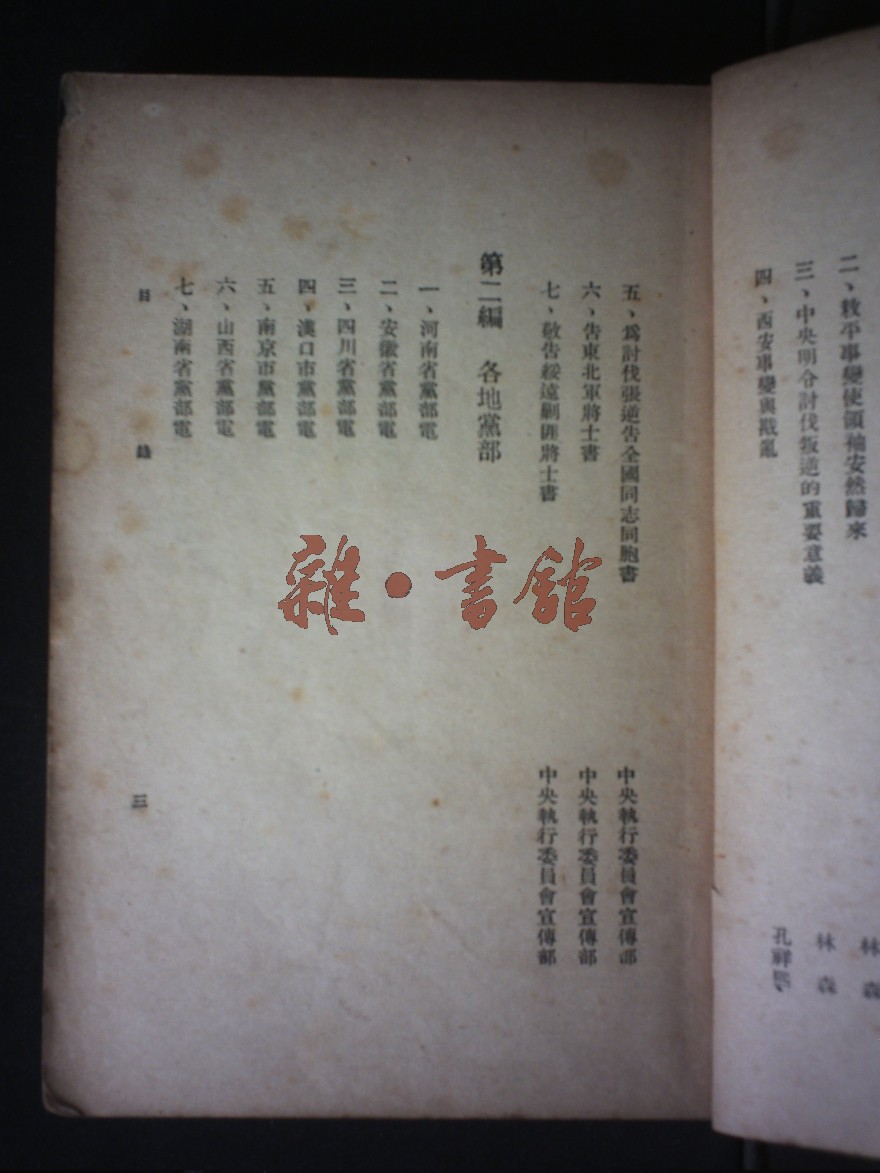 二、敉平事變使領袖安然歸來 林
三、中央明令討伐叛逆的重要意義 林 森
四、西安事變與戡亂 孔祥熙
五、爲討伐張逆告全國同志同胞書 中央執行委員會宣傳部
六、告東北軍將士書 中央執行委員會宣傳部
七、敬告綏遠剿匪將士書 中央執行委員會宣傳部
第二編 各地黨部
一、河南省黨部電
二、安徽省黨部電
三、四川省黨部電
四、漢口市黨部電
五、南京市黨部電
六、山西省黨部電
七、湖南省黨部電
目 錄 三
雜·書館